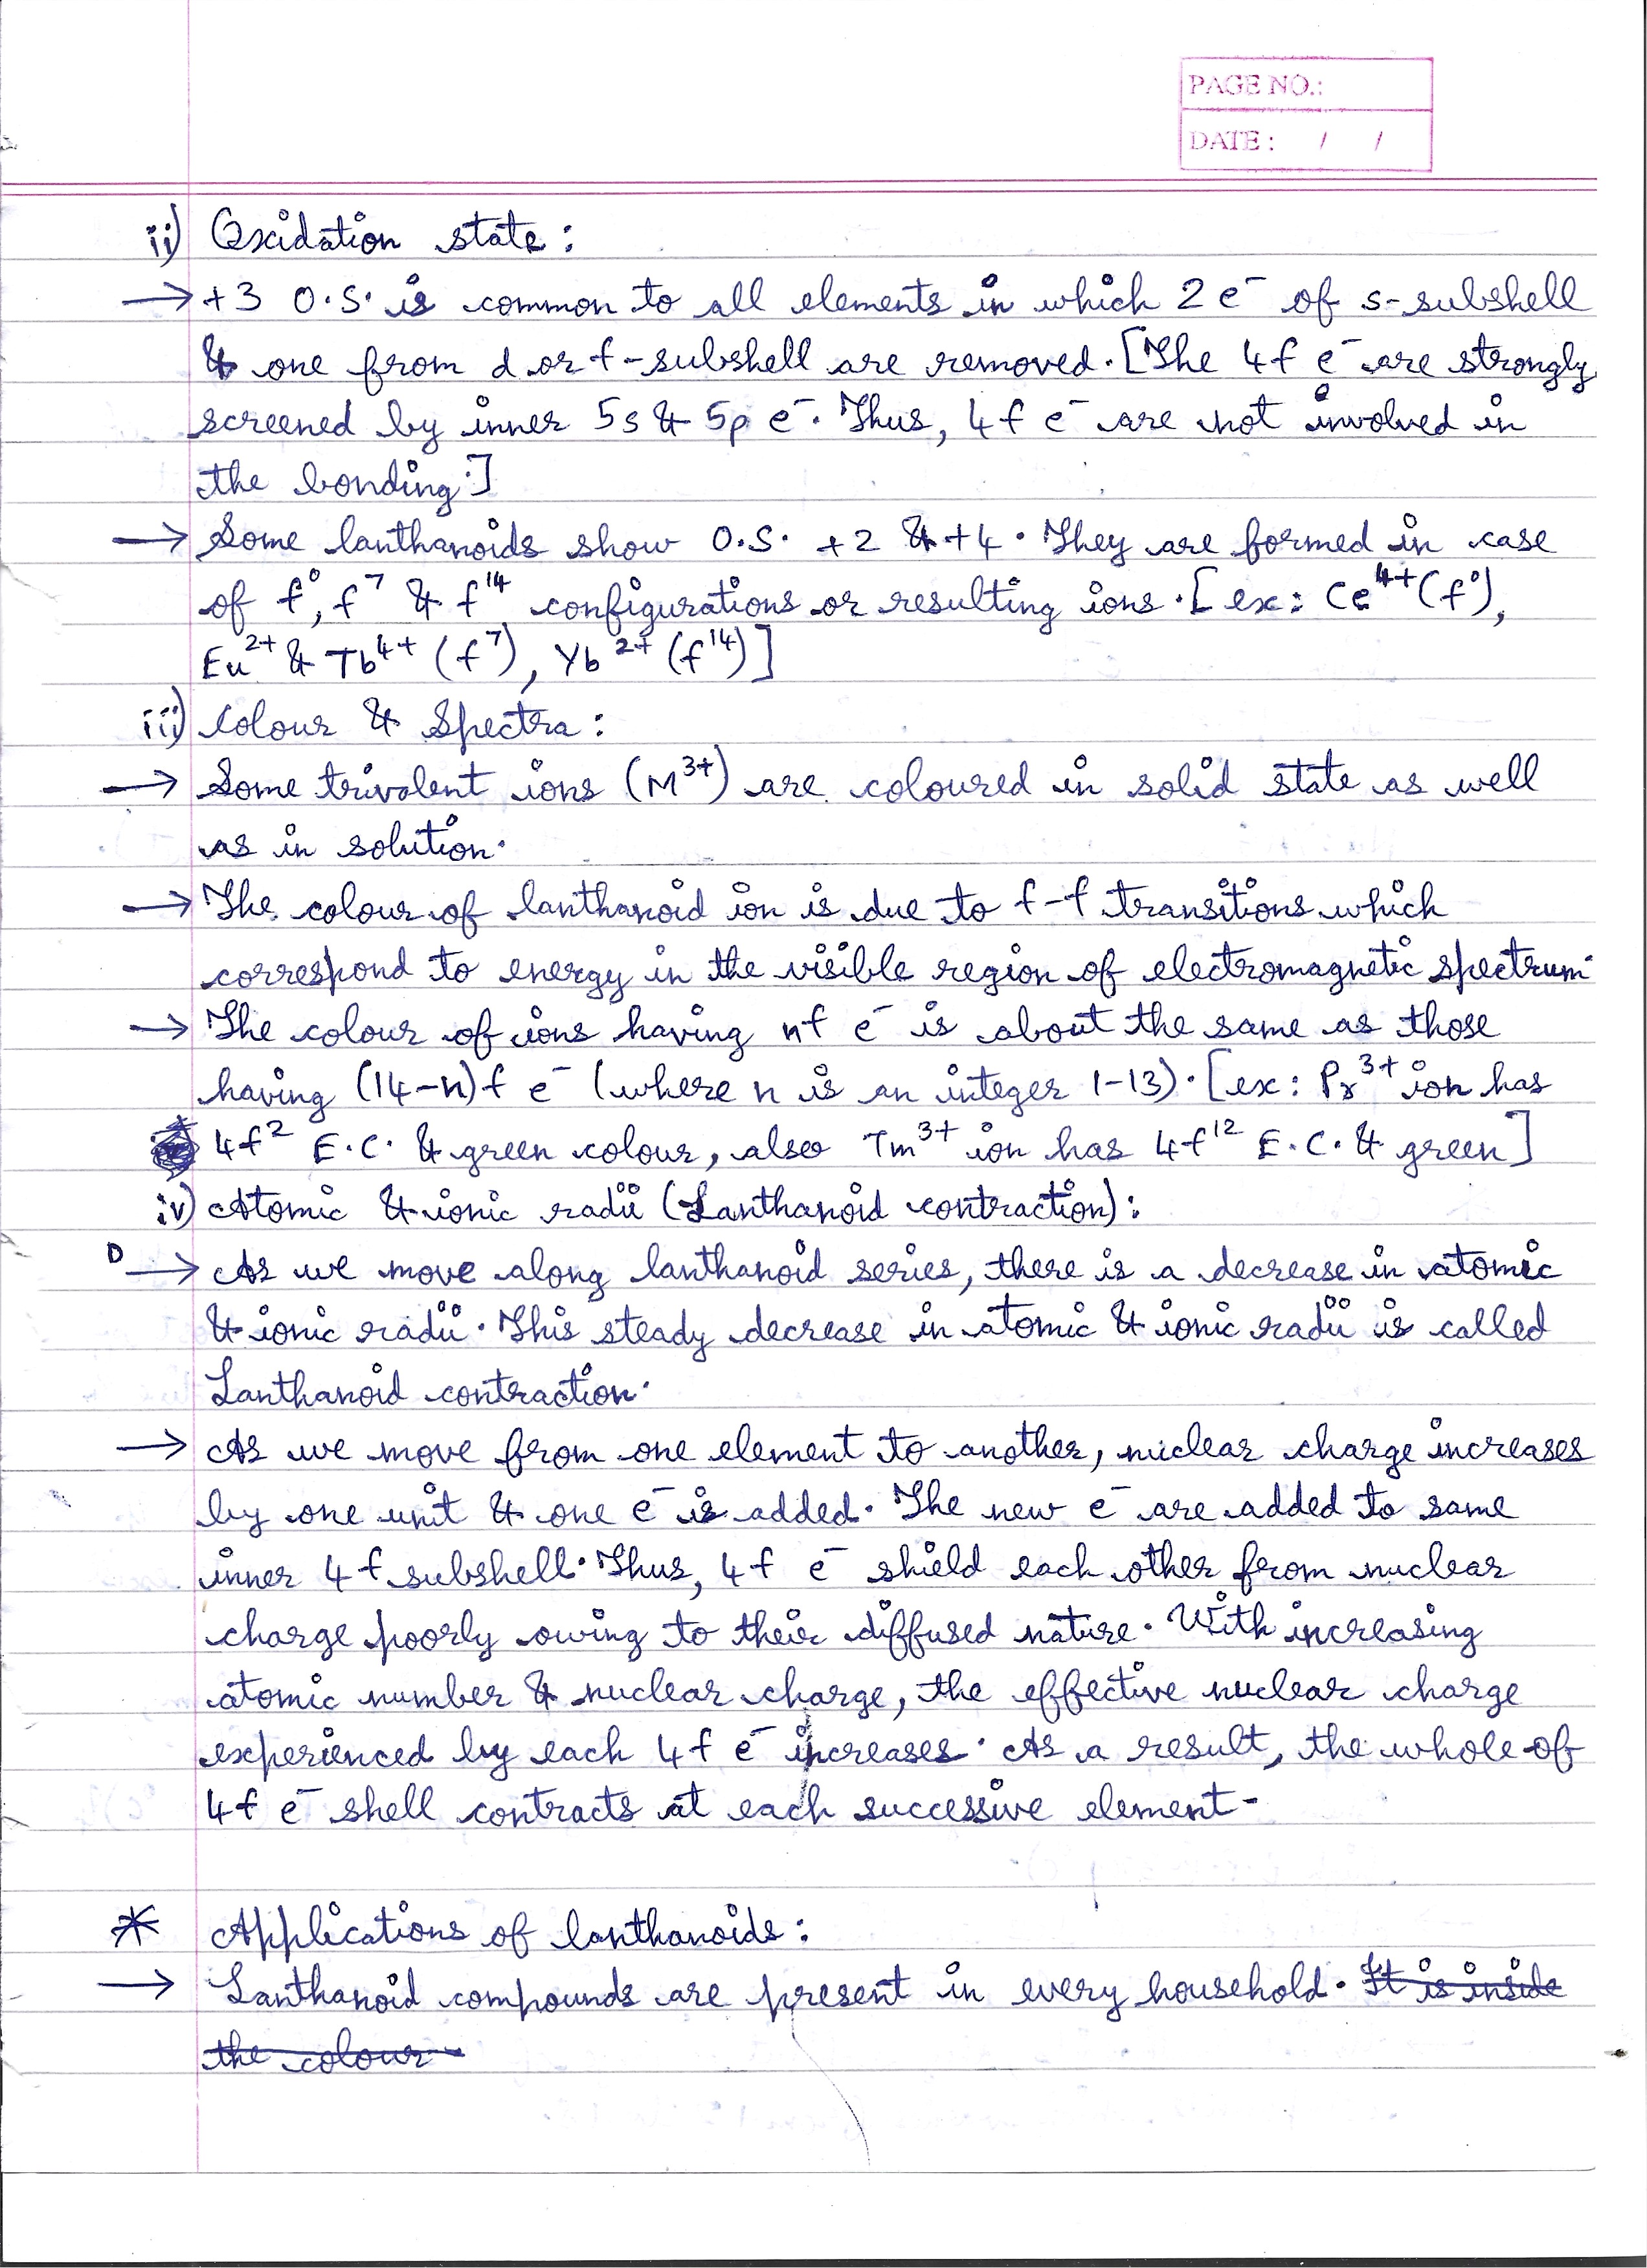 PAGE NO.:
DATE : / /
ii) Oxidation state :
→ +3 O.S. is common to all elements in which 2 e⁻ of s-subshell
& one from d or f-subshell are removed. [The 4f e⁻ are strongly
screened by inner 5s & 5p e⁻. Thus, 4f e⁻ are not involved in
the bonding.]
→ Some lanthanoids show O.S. +2 & +4. They are formed in case
of f⁰, f⁷ & f¹⁴ configurations or resulting ions. [ex: Ce⁴⁺ (f⁰),
Eu²⁺ & Tb⁴⁺ (f⁷), Yb²⁺ (f¹⁴)]
iii) Colour & Spectra :
→ Some trivalent ions (M³⁺) are coloured in solid state as well
as in solution.
→ The colour of lanthanoid ion is due to f-f transitions which
correspond to energy in the visible region of electromagnetic spectrum.
→ The colour of ions having nf e⁻ is about the same as those
having (14-n)f e⁻ (where n is an integer 1-13). [ex: Pr³⁺ ion has
4f² E.C. & green colour, also Tm³⁺ ion has 4f¹² E.C. & green]
iv) Atomic & ionic radii (Lanthanoid contraction) :
D → As we move along lanthanoid series, there is a decrease in atomic
& ionic radii. This steady decrease in atomic & ionic radii is called
Lanthanoid contraction.
→ As we move from one element to another, nuclear charge increases
by one unit & one e⁻ is added. The new e⁻ are added to same
inner 4f subshell. Thus, 4f e⁻ shield each other from nuclear
charge poorly owing to their diffused nature. With increasing
atomic number & nuclear charge, the effective nuclear charge
experienced by each 4f e⁻ increases. As a result, the whole of
4f e⁻ shell contracts at each successive element-
* Applications of lanthanoids :
→ Lanthanoid compounds are present in every household. It is inside
the colour